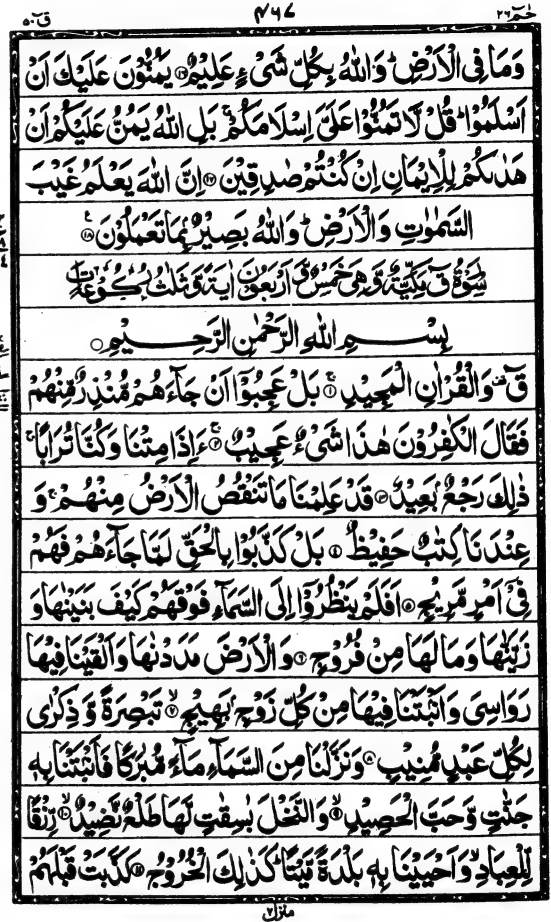 حٰمٓ ٢٦ ٤٦٧ قٓ ٥٠
وَمَا فِی الْاَرْضِ ؕ وَاللّٰهُ بِكُلِّ شَیْءٍ عَلِیْمٌ ﴿۱۶﴾ یَمُنُّوْنَ عَلَیْكَ اَنْ
اَسْلَمُوْا ؕ قُلْ لَّا تَمُنُّوْا عَلَیَّ اِسْلَامَكُمْ ۚ بَلِ اللّٰهُ یَمُنُّ عَلَیْكُمْ اَنْ
هَدٰىكُمْ لِلْاِیْمَانِ اِنْ كُنْتُمْ صٰدِقِیْنَ ﴿۱۷﴾ اِنَّ اللّٰهَ یَعْلَمُ غَیْبَ
السَّمٰوٰتِ وَالْاَرْضِ ؕ وَاللّٰهُ بَصِیْرٌۢ بِمَا تَعْمَلُوْنَ ﴿۱۸﴾
سُوْرَةُ قٓ مَكِّیَّةٌ وَّهِیَ خَمْسٌ وَّاَرْبَعُوْنَ اٰیَةً وَّثَلٰثُ رُكُوْعَاتٍ
بِسْمِ اللّٰهِ الرَّحْمٰنِ الرَّحِیْمِ
قٓ ۚ وَالْقُرْاٰنِ الْمَجِیْدِ ﴿۱﴾ بَلْ عَجِبُوْۤا اَنْ جَآءَهُمْ مُّنْذِرٌ مِّنْهُمْ
فَقَالَ الْكٰفِرُوْنَ هٰذَا شَیْءٌ عَجِیْبٌ ﴿۲﴾ ءَاِذَا مِتْنَا وَكُنَّا تُرَابًا ۚ
ذٰلِكَ رَجْعٌۢ بَعِیْدٌ ﴿۳﴾ قَدْ عَلِمْنَا مَا تَنْقُصُ الْاَرْضُ مِنْهُمْ ۚ وَ
عِنْدَنَا كِتٰبٌ حَفِیْظٌ ﴿۴﴾ بَلْ كَذَّبُوْا بِالْحَقِّ لَمَّا جَآءَهُمْ فَهُمْ
فِیْۤ اَمْرٍ مَّرِیْجٍ ﴿۵﴾ اَفَلَمْ یَنْظُرُوْۤا اِلَی السَّمَآءِ فَوْقَهُمْ كَیْفَ بَنَیْنٰهَا وَ
زَیَّنّٰهَا وَمَا لَهَا مِنْ فُرُوْجٍ ﴿۶﴾ وَالْاَرْضَ مَدَدْنٰهَا وَاَلْقَیْنَا فِیْهَا
رَوَاسِیَ وَاَنْۢبَتْنَا فِیْهَا مِنْ كُلِّ زَوْجٍۭ بَهِیْجٍ ﴿۷﴾ تَبْصِرَةً وَّذِكْرٰی
لِكُلِّ عَبْدٍ مُّنِیْبٍ ﴿۸﴾ وَنَزَّلْنَا مِنَ السَّمَآءِ مَآءً مُّبٰرَكًا فَاَنْۢبَتْنَا بِهٖ
جَنّٰتٍ وَّحَبَّ الْحَصِیْدِ ﴿۹﴾ وَالنَّخْلَ بٰسِقٰتٍ لَّهَا طَلْعٌ نَّضِیْدٌ ﴿۱۰﴾ رِّزْقًا
لِّلْعِبَادِ ۙ وَاَحْیَیْنَا بِهٖ بَلْدَةً مَّیْتًا ؕ كَذٰلِكَ الْخُرُوْجُ ﴿۱۱﴾ كَذَّبَتْ قَبْلَهُمْ
منزل ۷